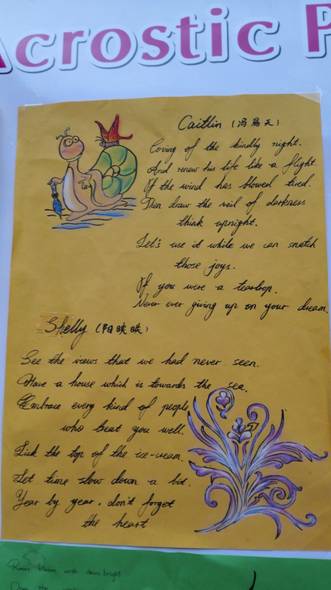 Acrostic P
Caitlin (冯    天)
Coving of the kindly night.
And renew his life like a flight.
If the wind has blowed tired.
Then draw the veil of darkness
think upright.
Let's use it while we can snatch
those joys.
If you were a teardrop.
Never ever giving up on your dream.
Shelly (阳    )
See the views that we had never seen.
Have a house which is towards the sea.
Embrace every kind of people
who beat you well.
Lick the top of the ice-cream.
Let time slow down a bit.
Year by year, don't forget
the heart